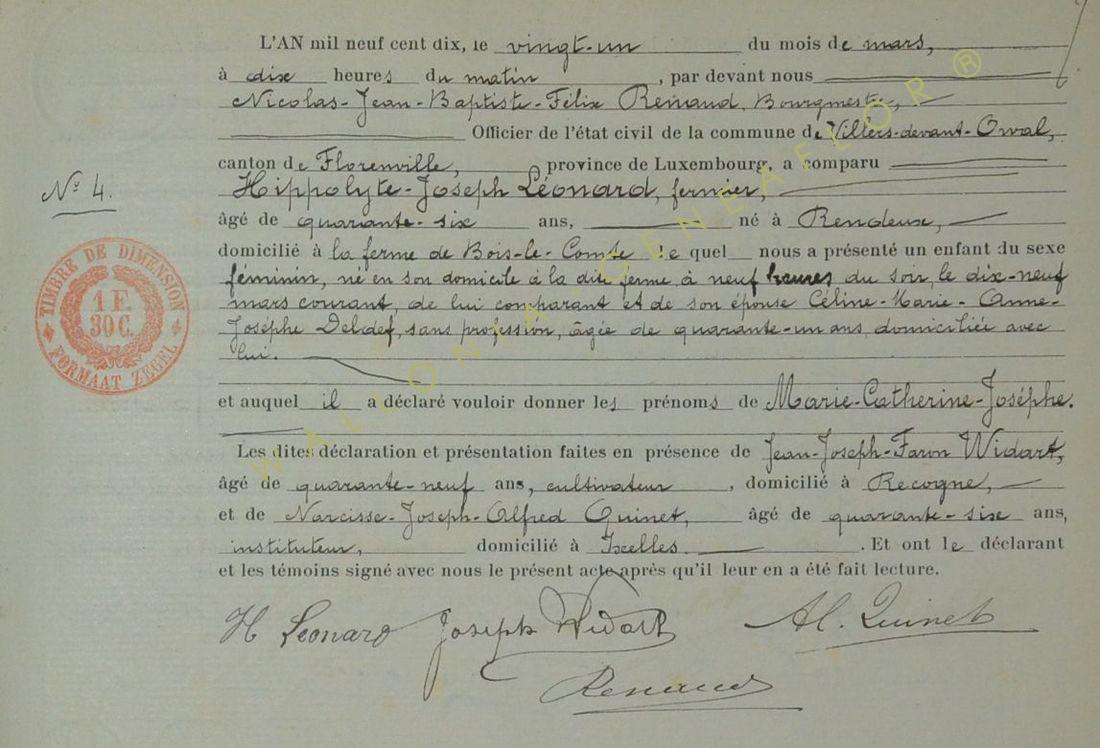 L'AN mil neuf cent dix, le vingt-un du mois de mars,
à dix heures du matin, par devant nous
Nicolas-Jean-Baptiste-Félix Renaud, Bourgmestre,
Officier de l'état civil de la commune de Villers-devant-Orval,
canton de Florenville, province de Luxembourg, a comparu
Hippolyte-Joseph Léonard, fermier,
N° 4.
âgé de quarante-six ans, né à Rendeux,
domicilié à la ferme de Bois-le-Comte lequel nous a présenté un enfant du sexe
féminin, né en son domicile à la dite ferme à neuf heures du soir, le dix-neuf
mars courant, de lui comparant et de son épouse Céline-Marie-Anne-
Joséphe Deldef, sans profession, âgée de quarante-un ans, domiciliée avec
lui.
TIMBRE DE DIMENSION
1 F.
30 C.
FORMAAT ZEGEL
et auquel il a déclaré vouloir donner les prénoms de Marie-Catherine-Joséphe.
Les dites déclaration et présentation faites en présence de Jean-Joseph-Faron Widart,
âgé de quarante-neuf ans, cultivateur, domicilié à Recogne,
et de Narcisse-Joseph-Alfred Quinet, âgé de quarante-six ans,
instituteur, domicilié à Ixelles. Et ont le déclarant
et les témoins signé avec nous le présent acte après qu'il leur en a été fait lecture.
H Leonard Joseph Widart Al. Quinet
Renaud
WALLONIA GENEAFLOR ®